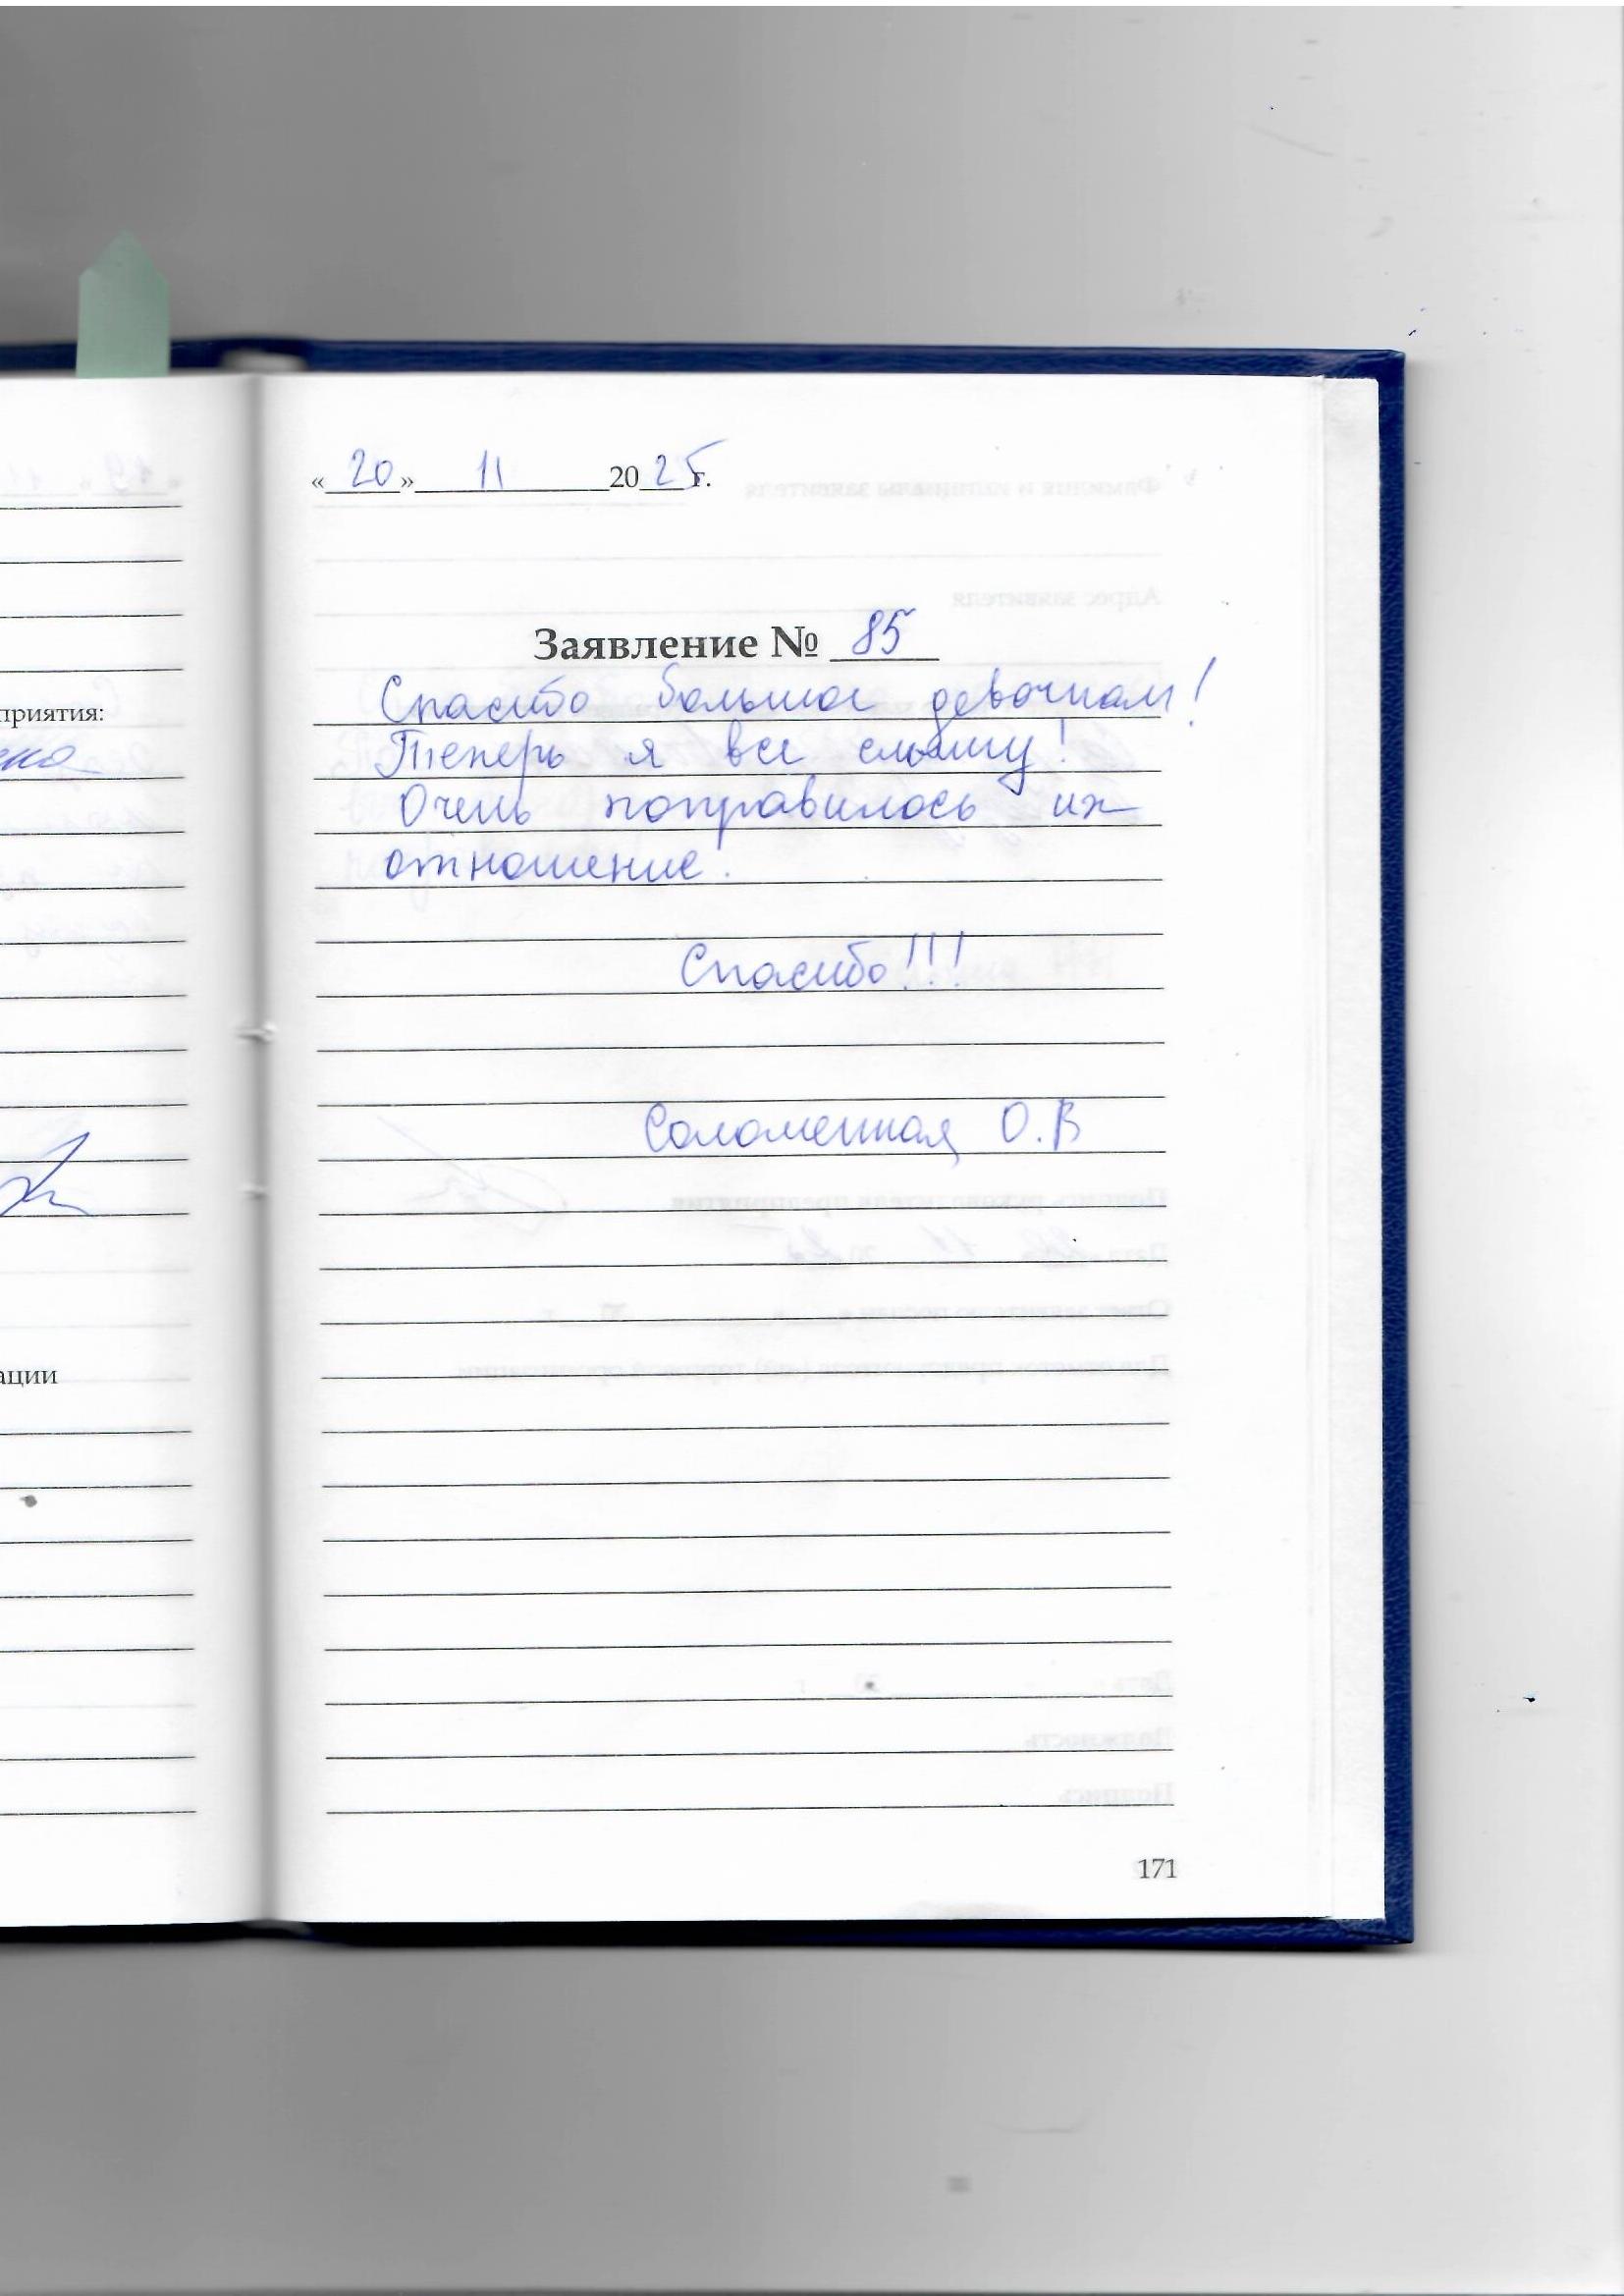 «20» 11 2025 г.
Заявление № 85
Спасибо большое девочкам!
Теперь я все слышу!
Очень понравилось их
отношение.
Спасибо!!!
Соломенная О.В
171
приятия:
ации